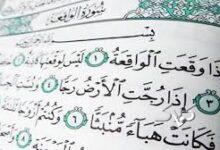 سُورَةُ الوَاقِعَةِ
بِسْمِ
ذَا وَقَعَتِ الْوَاقِعَةُ ١ لَيْسَ لِوَقْعَتِهَا
٣ إِذَا رُجَّتِ الْأَرْضُ رَجًّا
فَكَانَتْ هَبَاءً مُّنْبَثًّا ٦ وَكُنتُمْ أَزْ